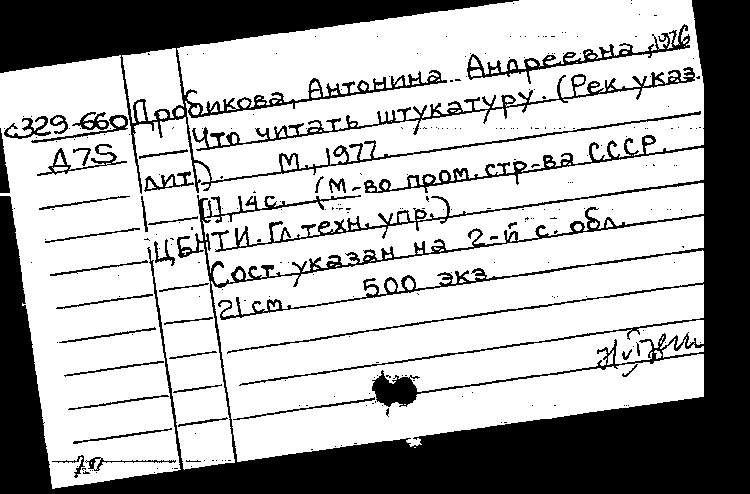 Дробикова, Антонина Андреевна, 1926
с329-660
Д75
Что читать штукатуру. (Рек. указ.
лит.). М., 1977.
[1], 14 с. (М-во пром. стр-ва СССР.
ЦБНТИ. Гл. техн. упр.).
Сост. указан на 2-й с. обл.
21 см. 500 экз.
20